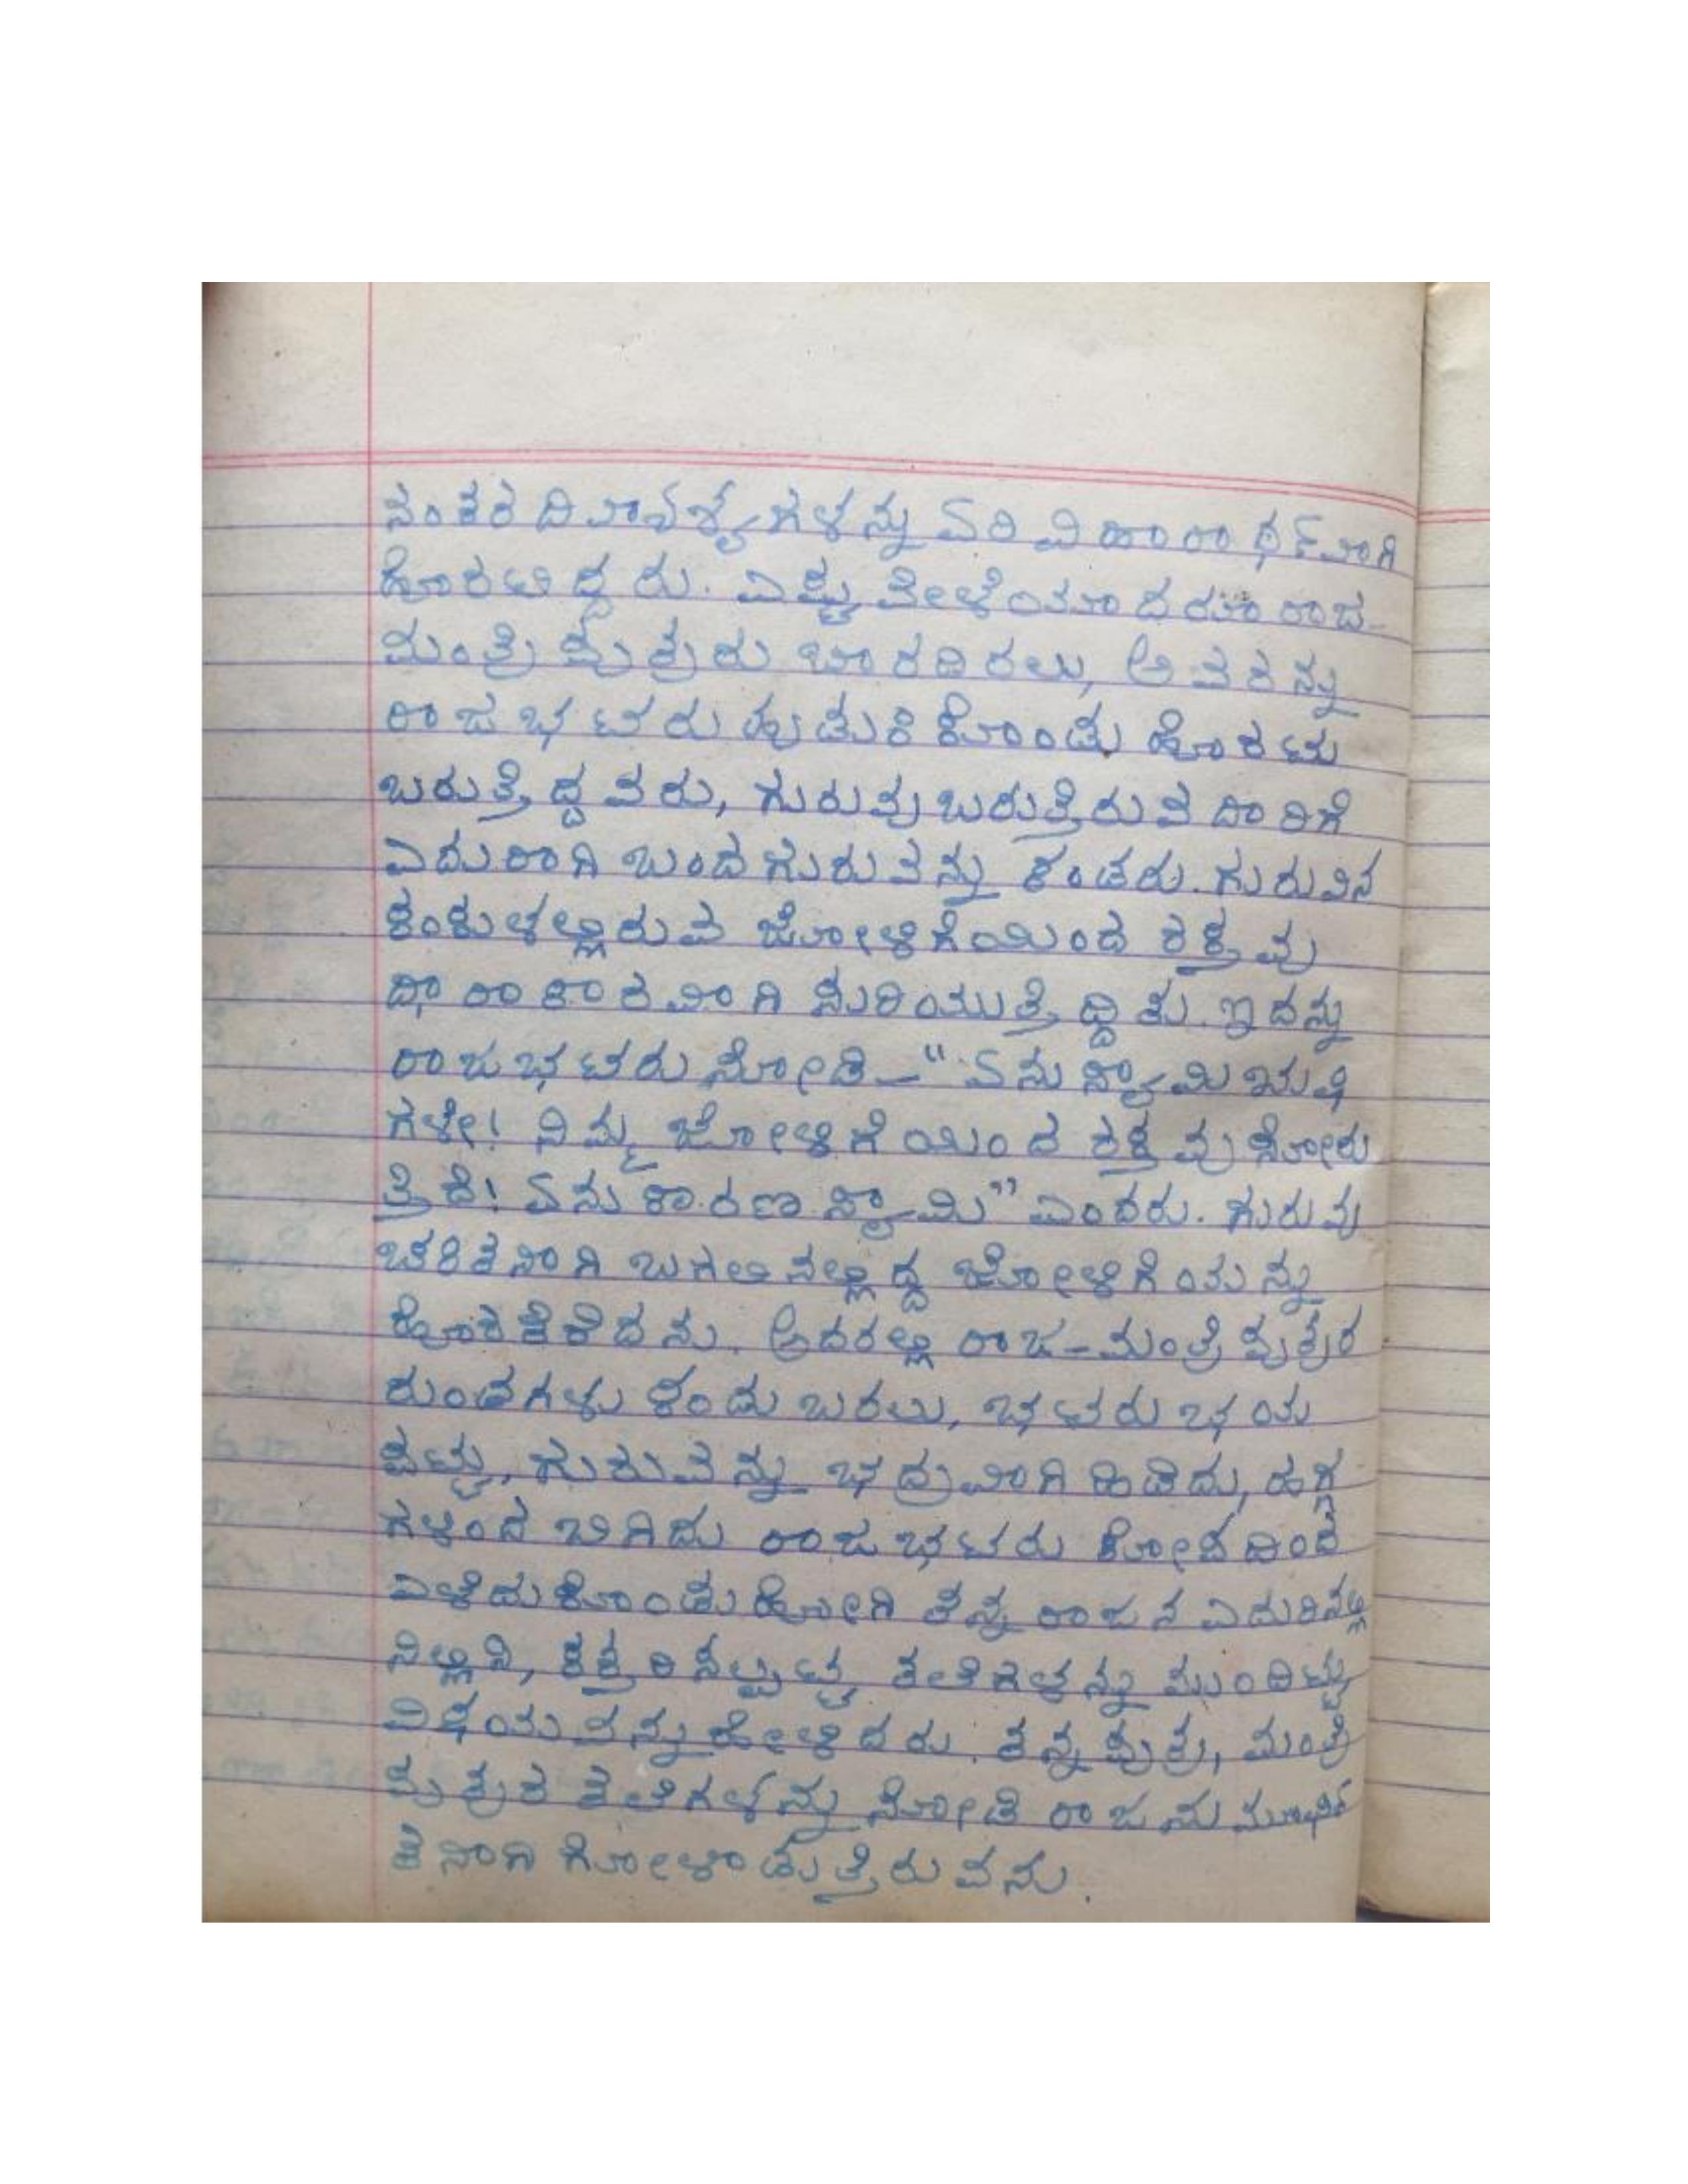 ನಂತರ ದಿವಾಶ್ವಗಳನ್ನು ಏರಿ ವಿಹಾರಾರ್ಥವಾಗಿ
ಹೊರಟಿದ್ದರು. ಎಷ್ಟು ವೇಳೆಯಾದರೂ ರಾಜ-
ಮಂತ್ರಿ ಪುತ್ರರು ಬಾರದಿರಲು, ಅವರನ್ನು
ರಾಜಭಟರು ಹುಡುಕಿಕೊಂಡು ಹೊರಟು
ಬರುತ್ತಿದ್ದವರು, ಗುರುವು ಬರುತ್ತಿರುವ ದಾರಿಗೆ
ಎದುರಾಗಿ ಬಂದ ಗುರುವನ್ನು ಕಂಡರು. ಗುರುವಿನ
ಕಂಕುಳಲ್ಲಿರುವ ಜೋಳಿಗೆಯಿಂದ ರಕ್ತವು
ಧಾರಾಕಾರವಾಗಿ ಸುರಿಯುತ್ತಿದ್ದಿತು. ಇದನ್ನು
ರಾಜಭಟರು ನೋಡಿ – "ಏನು ಸ್ವಾಮಿ ಋಷಿ
ಗಳೇ! ನಿಮ್ಮ ಜೋಳಿಗೆಯಿಂದ ರಕ್ತವು ಸೋರು
ತ್ತಿದೆ! ಏನು ಕಾರಣ ಸ್ವಾಮಿ" ಎಂದರು. ಗುರುವು
ಚಕಿತನಾಗಿ ಬಗಲಿನಲ್ಲಿದ್ದ ಜೋಳಿಗೆಯನ್ನು
ಹೊರತೆಗೆದನು. ಅದರಲ್ಲಿ ರಾಜ-ಮಂತ್ರಿ ಪುತ್ರರ
ರುಂಡಗಳು ಕಂಡು ಬರಲು, ಭಟರು ಭಯ
ಪಟ್ಟು, ಗುರುವನ್ನು ಭದ್ರವಾಗಿ ಹಿಡಿದು, ಹಗ್ಗ
ಗಳಿಂದ ಬಿಗಿದು ರಾಜಭಟರು ಕೋಪದಿಂದ
ಎಳೆದುಕೊಂಡು ಹೋಗಿ ತನ್ನ ರಾಜನ ಎದುರಿನಲ್ಲಿ
ನಿಲ್ಲಿಸಿ, ಕತ್ತರಿಸಲ್ಪಟ್ಟ ತಲೆಗಳನ್ನು ಮುಂದಿಟ್ಟು
ವಿಷಯವನ್ನು ಹೇಳಿದರು. ತನ್ನ ಪುತ್ರ, ಮಂತ್ರಿ
ಪುತ್ರರ ತಲೆಗಳನ್ನು ನೋಡಿ ರಾಜನು ಮೂರ್ಛಿ
ತನಾಗಿ ಗೋಳಾಡುತ್ತಿರುವನು.